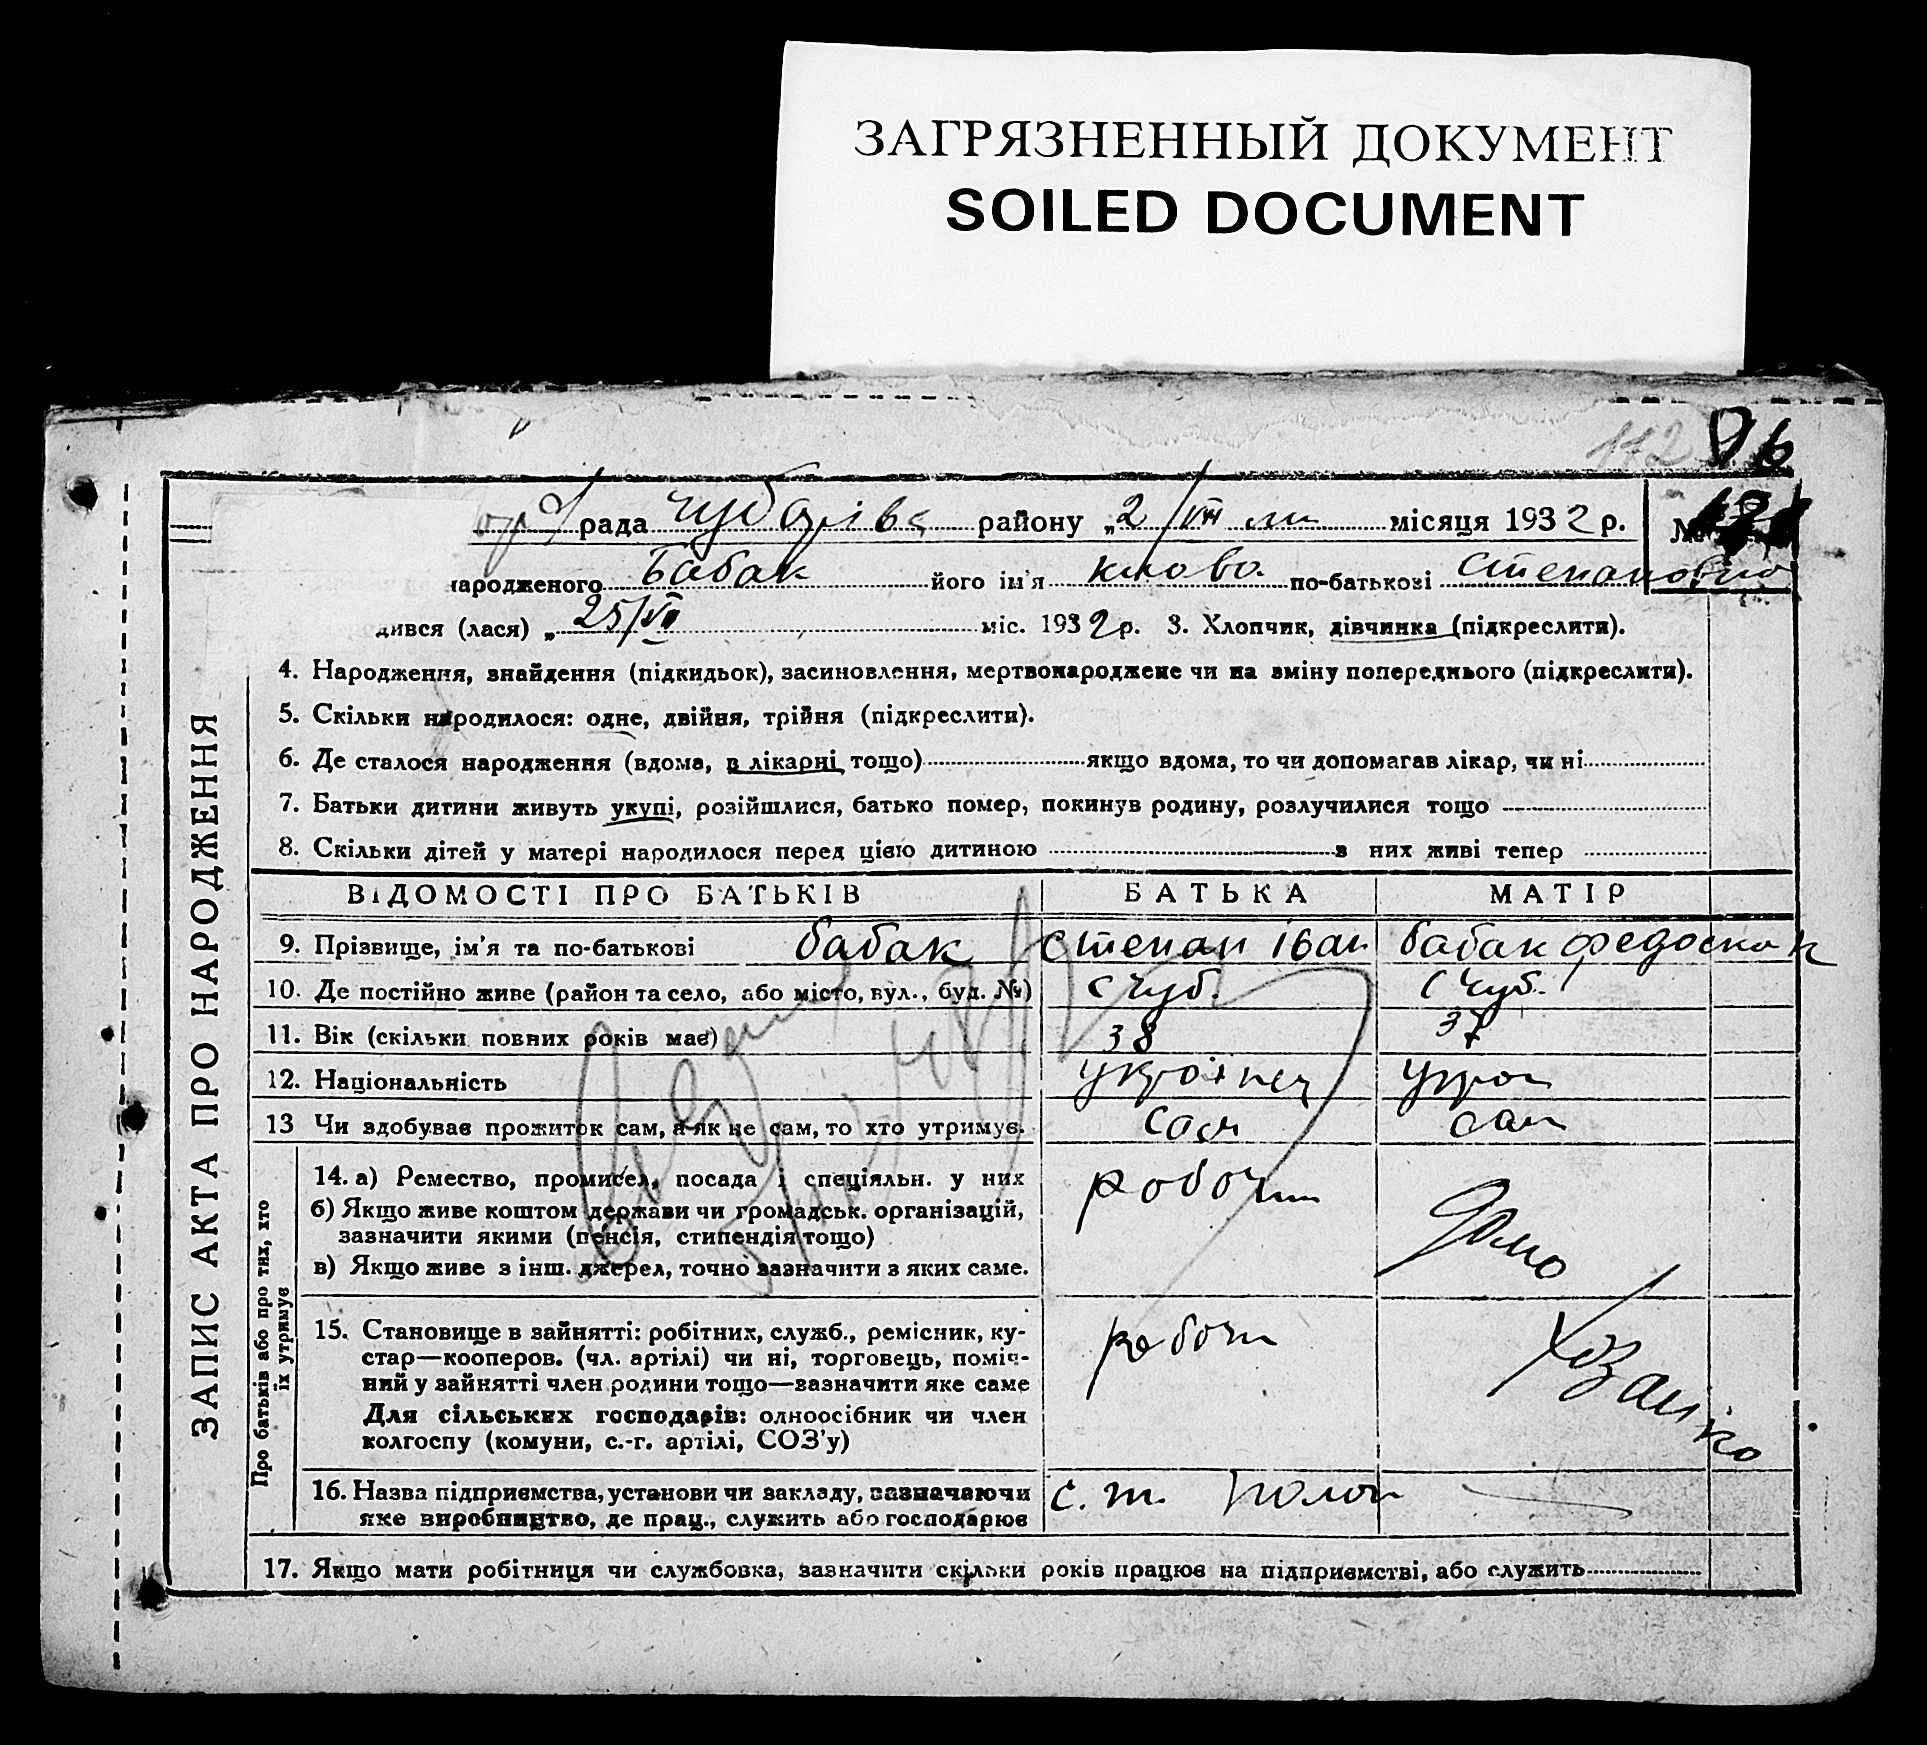 ЗАГРЯЗНЕННЫЙ ДОКУМЕНТ
SOILED DOCUMENT
172
рада Чубарівс району „2/VIII м місяця 1932 р. №
народженого Бабак його ім'я по-батькові Степановна
дився (лася) „25/VII міс. 1932 р. 3. Хлопчик, дівчинка (підкреслити).
4. Народження, знайдення (підкидьок), засиновлення, мертвонароджене чи на зміну попереднього (підкреслити).
5. Скільки народилося: одне, двійня, трійня (підкреслити).
6. Де сталося народження (вдома, в лікарні, тощо) якщо вдома, то чи допомагав лікар, чи ні
7. Батьки дитини живуть укупі, розійшлися, батько помер, покинув родину, розлучилися тощо
8. Скільки дітей у матері народилося перед цією дитиною з них живі тепер
ЗАПИС АКТА ПРО НАРОДЖЕННЯ
ВІДОМОСТІ ПРО БАТЬКІВ БАТЬКА МАТІР
9. Прізвище, ім'я та по-батькові бабак степан іван бабак
10. Де постійно живе (район та село, або місто, вул., буд. №) с чуб. с чуб.
11. Вік (скільки повних років має) 38 37
12. Національність українец украї
13 Чи здобуває прожиток сам, а як не сам, то хто утримує. сам сам
Про батьків або про тих, хто їх утримує
14. а) Ремество, промисел, посада і спеціяльн. у них робочий
б) Якщо живе коштом держави чи громадськ. організацій,
зазначити якими (пенсія, стипендія тощо) Домо
в) Якщо живе з інш. джерел, точно зазначити з яких саме.
15. Становище в зайнятті: робітник, служб., ремісник, ку-
стар—кооперов. (чл. артілі) чи ні, торговець, поміч- робочи
ний у зайнятті член родини тощо—зазначити яке саме хозайко
Для сільських господарів: одноосібник чи член
колгоспу (комуни, с.-г. артілі, СОЗ'у)
16. Назва підприємства, установи чи закладу, зазначаючи с. т.
яке виробництво, де прац., служить або господарює
17. Якщо мати робітниця чи службовка, зазначити скільки років працює на підприємстві, або служить